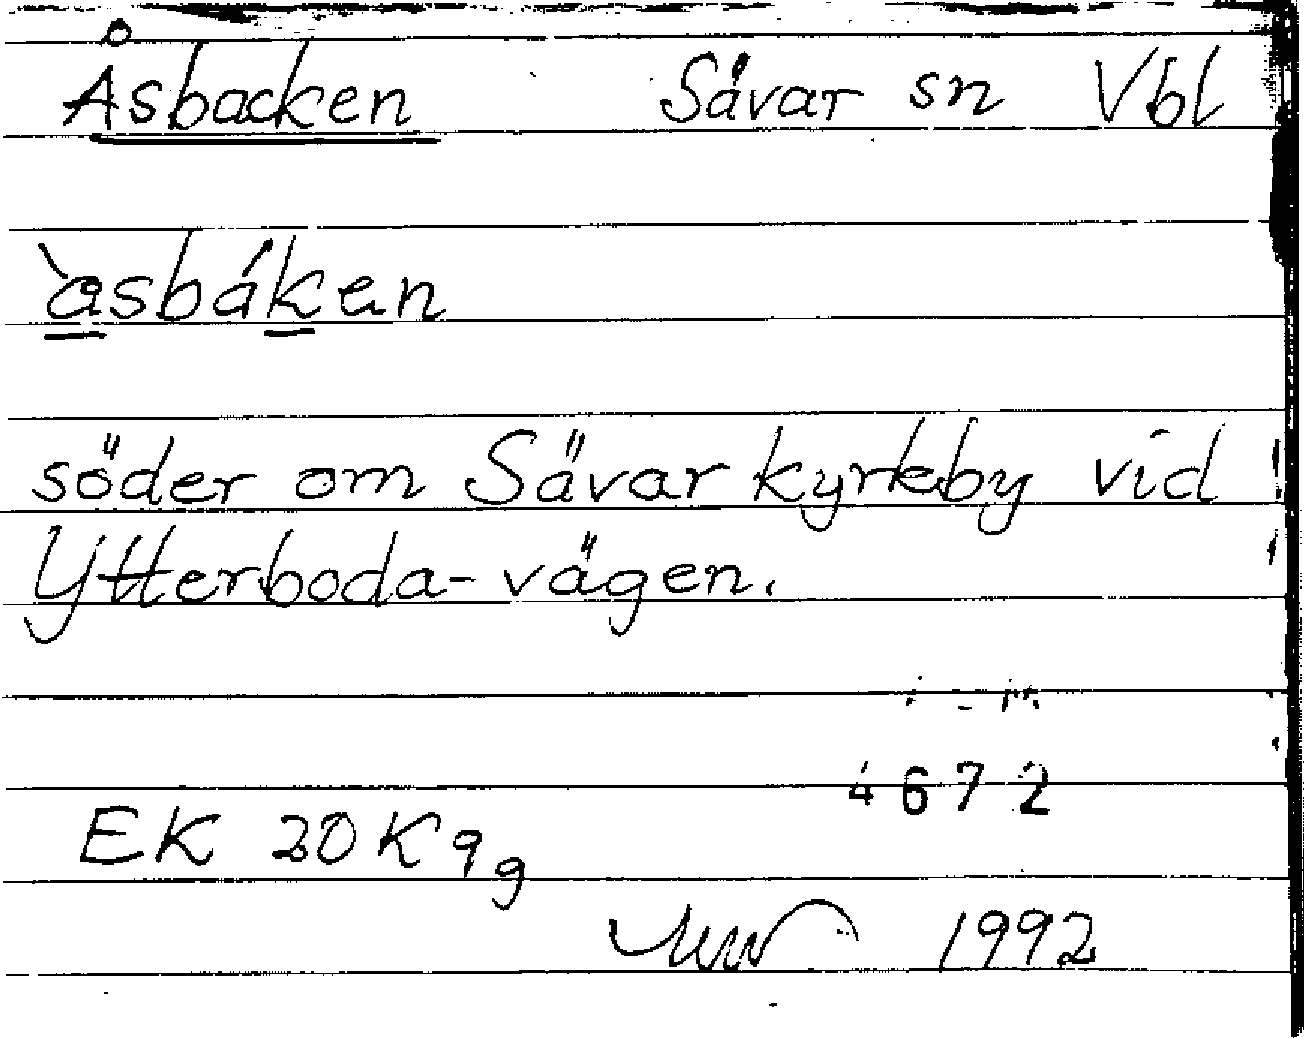 Åsbacken Sävar sn Vbl
àsbáken
söder om Sävar kyrkby vid
Ytterboda-vägen.
4672
EK 20K 9g
1992